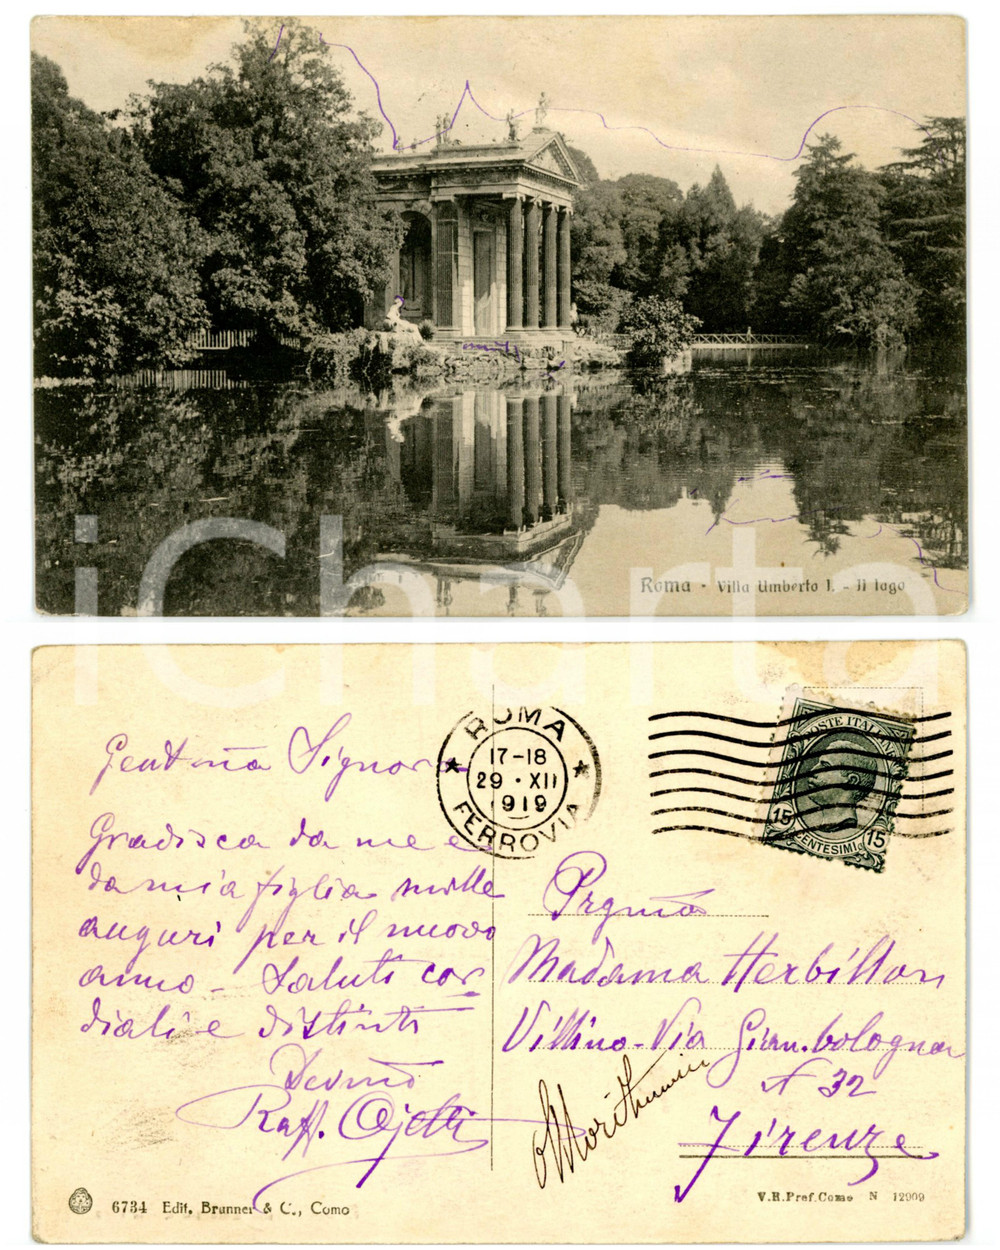 Roma - Villa Umberto I. - Il lago
iCharta
Gentma Signora
Gradisca da me e
da mia figlia mille
auguri per il nuovo
anno - Saluti cor=
diali e distinti
Devmo
Raff. Ojetti
ROMA
17-18
29 · XII
919
FERROVIA
POSTE ITALIANE
15 CENTESIMI 15
Prgma
Madama Herbillon
Villino - Via Giam.bologna
N 32
Firenze
6734 Edit. Brunner & C., Como
V.R.Pref.Como N 12909